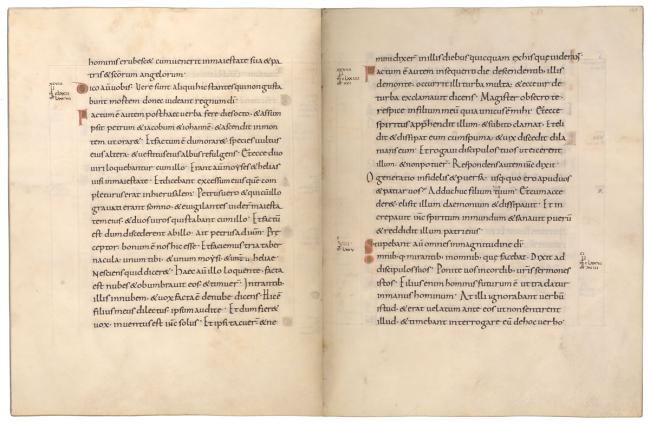 hominis erubescet cum uenerit in maiestate sua & pa
tris & scorum angelorum ·
Dico au uobis · Vere sunt aliqui hic stantes qui non gusta
bunt mortem donec uideant regnum di
Factum e autem post haec uerba fere dies octo · & assum
psit petrum & iacobum & iohanne · & ascendit in mon
tem ut oraret · Et factum e dum oraret · species uultus
eius altera · & uestitus eius albus refulgens · Et ecce duo
uiri loquebantur cum illo · Erant au moyses & helias
uisi in maiestate · Et dicebant excessum eius que com
pleturus erat in hierusalem · Petrus uero & qui cu illo
grauati erant somno · & euigilantes uiderunt maiesta
tem eius · & duos uiros qui stabant cum illo · Et factu
est dum discederent ab illo · Ait petrus ad ihm · Pre
ceptor · bonum e nos hic esse · Et faciamus tria taber
nacula · unum tibi · & unum moysi · & unu heliae ·
Nesciens quid diceret · Haec au illo loquente · facta
est nubes & obumbrauit eos · & timuer · Intrantib ·
illis in nubem · & uox facta e de nube dicens · Hic e
filius meus dilectus ipsum audite · Et dum fier&
uox · inuentus est ihc solus · Et ipsi tacuer & ne
mini dixer in illis diebus quicquam ex his que uiderant
Factum e autem in sequenti die descendentib illis
de monte · occurrit illi turba multa · & ecce uir de
turba exclamauit dicens · Magister obsecro te ·
respice in filium meu quia unicus e mihi · Et ecce
spiritus apphendit illum · & subito clamat · Et eli
dit & dissipat eum cum spuma · & uix discedit dila
nians eum · Et rogaui discipulos tuos ut eicerent
illum · & non potuer · Respondens autem ihc dixit ·
O generatio infidelis & peruersa · usquequo ero apud uos
& patiar uos · Adduc huc filium tuum · Et cum acce
deret · elisit illum daemonium & dissipauit · Et in
crepauit ihc spiritum inmundum & sanauit pueru
& reddidit illum patri eius
Stupebant au omnes in magnitudine di
Omnibq mirantib in omnib · que faciebat · Dixit ad
discipulos suos · Ponite uos in cordib uris sermones
istos · Filius enim hominis futurum e ut tradatur
in manus hominum · At illi ignorabant uerbu
istud · & erat uelatum ante eos ut non sentirent
illud · & timebant interrogare eu de hoc uerbo ·